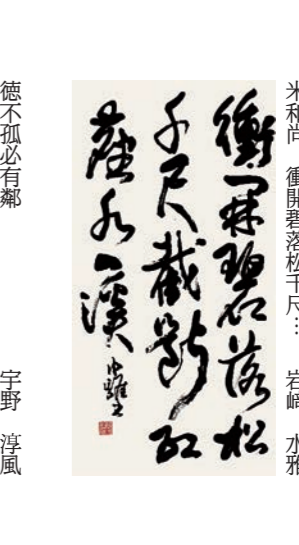 米和尚　衝開碧落松千尺…　岩﨑　水雅
衝開碧落松
千尺截斷紅
塵水一溪
徳不孤必有鄰　宇野　淳風